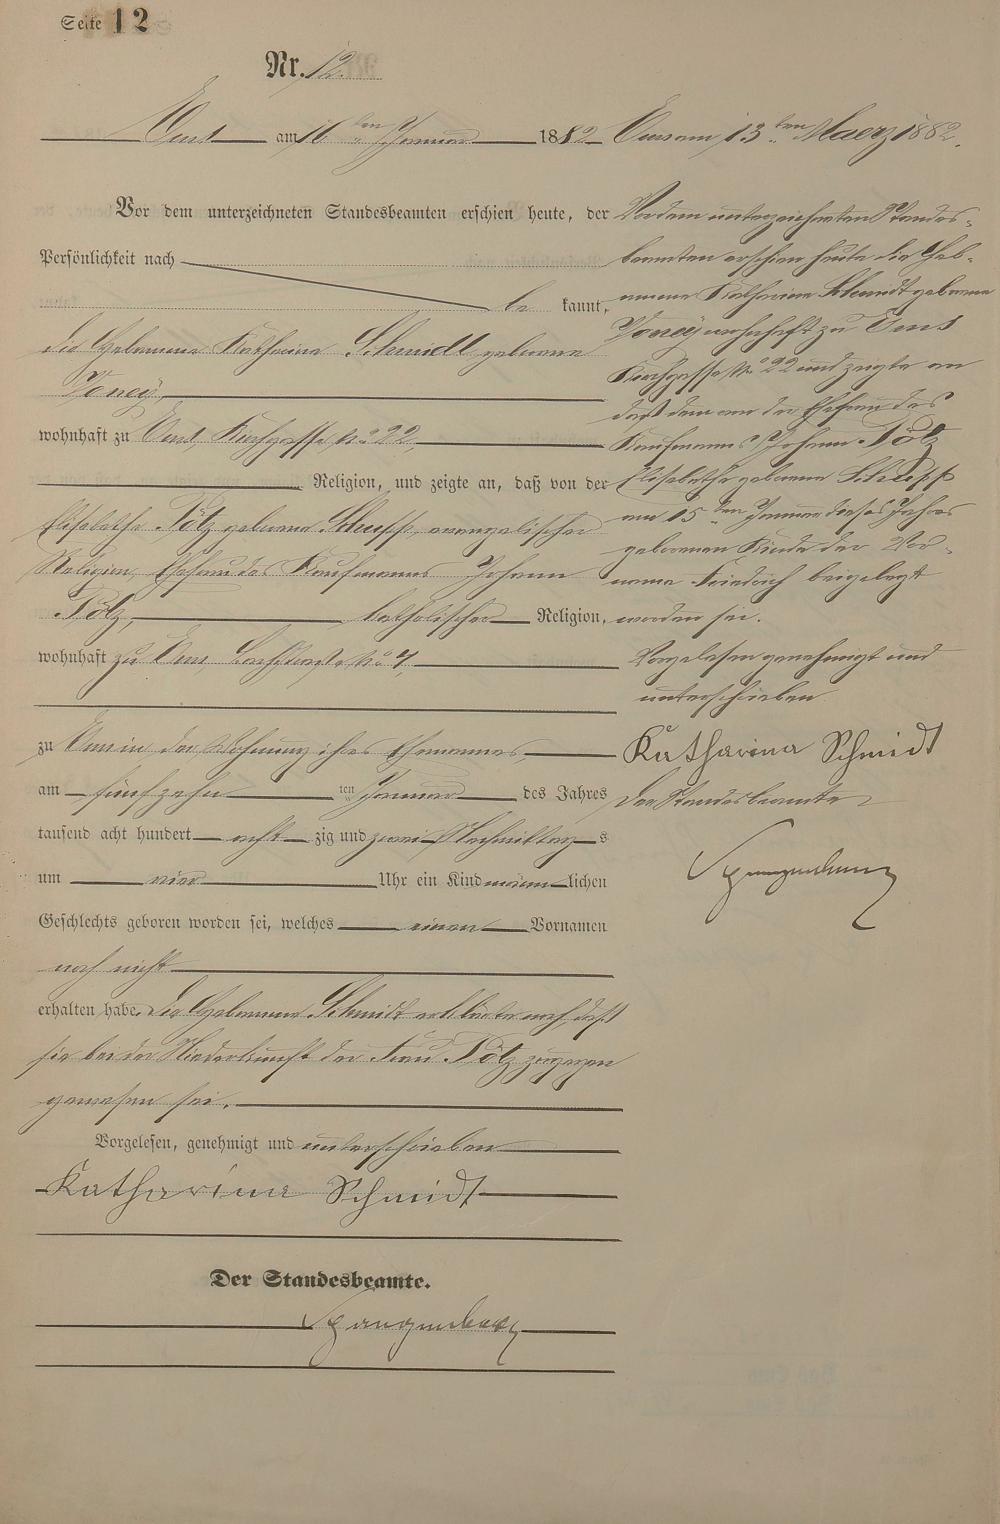 Seite 12
Nr. 12
Ems am 16ten Januar 1882
Vor dem unterzeichneten Standesbeamten erschien heute, der
Persönlichkeit nach
be kannt,
die Hebamme Katharina Schmidt geborene
wohnhaft zu Ems, Kirchgasse No 22,
Religion, und zeigte an, daß von der
Elisabetha Pötz geborene Schupp, evangelischer
Religion, Ehefrau des Kaufmanns Johann
Pötz, katholischer Religion,
wohnhaft zu Ems, No 4,
zu Ems in der Wohnung ihres Ehemannes,
am fünfzehn ten Januar des Jahres
tausend acht hundert acht zig und zwei Nachmittag s
um vier Uhr ein Kind männ lichen
Geschlechts geboren worden sei, welches einen Vornamen
noch nicht
erhalten habe. Die Hebamme Schmidt erklärte noch daß
sie bei der Niederkunft der Frau Pötz zugegen
gewesen sei.
Vorgelesen, genehmigt und unterschrieben
Katharina Schmidt
Der Standesbeamte.
Spangenberg
Ems am 13ten Maerz 1882.
Vor dem unterzeichneten Standes-
beamten erschien heute die Heb-
amme Katharina Schmidt geborene
wohnhaft zu Ems
Kirchgasse No 22 und zeigte an
daß dem von der Ehefrau des
Kaufmanns Johann Pötz
Elisabetha geborene Schupp
am 15ten Januar dieses Jahres
geborenen Kinde der Vor-
name Friedrich beigelegt
worden sei.
Vorgelesen genehmigt und
unterschrieben
Katharina Schmidt
Der Standesbeamte
Spangenberg